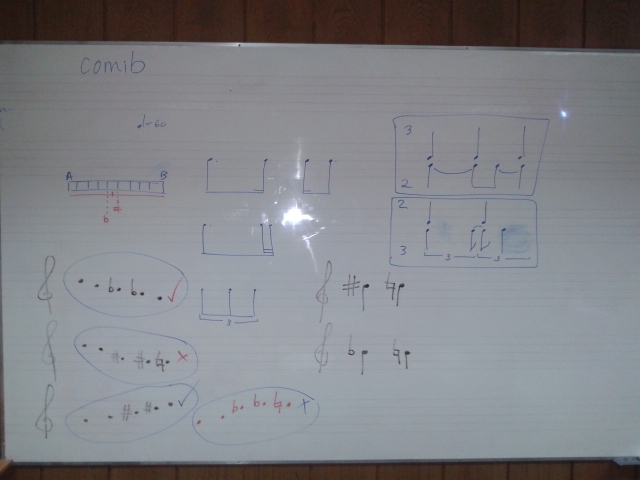 comib
♩=60
A B
b #
3
2
2
3
3 3
3